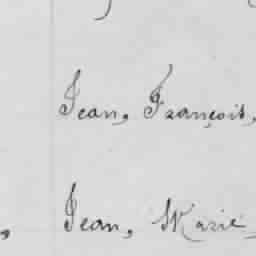 Jean, François,
Jean, Marie